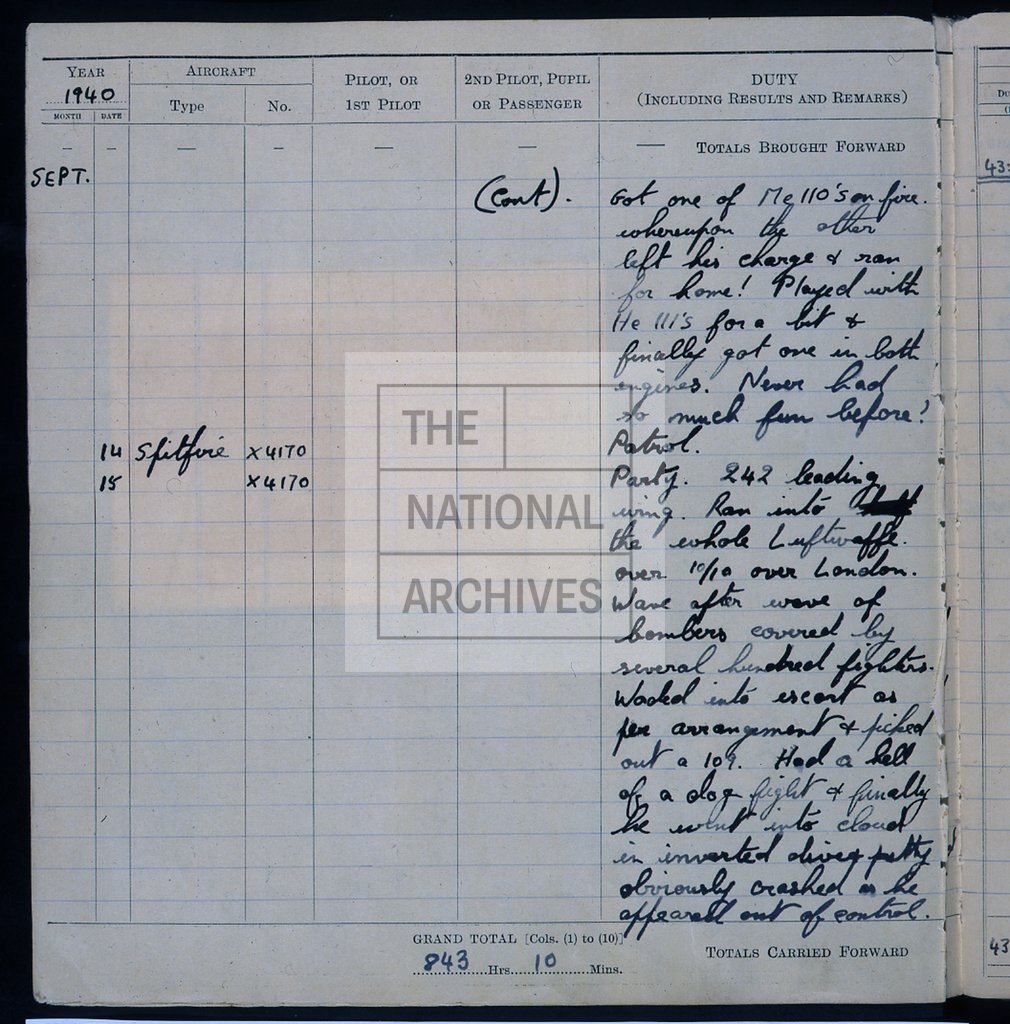 YEAR
1940
AIRCRAFT
PILOT, OR
1ST PILOT
2ND PILOT, PUPIL
OR PASSENGER
DUTY
(INCLUDING RESULTS AND REMARKS)
MONTH DATE
Type No.
— — — — — — — TOTALS BROUGHT FORWARD
SEPT.
(Cont). Got one of Me 110's on fire.
whereupon the other
left his charge & ran
for home! Played with
He 111's for a bit &
finally got one in both
engines. Never had
so much fun before!
14 Spitfire X4170 Patrol.
15 X4170 Party. 242 leading
wing. Ran into
the whole Luftwaffe.
over 10/10 over London.
Wave after wave of
bombers covered by
several hundred fighters.
Waded into escort as
per arrangement & picked
out a 109. Had a hell
of a dog fight & finally
he went into cloud
in inverted dive & pretty
obviously crashed as he
appeared out of control.
GRAND TOTAL [Cols. (1) to (10)]
843 Hrs. 10 Mins.
TOTALS CARRIED FORWARD
THE
NATIONAL
ARCHIVES
43
43